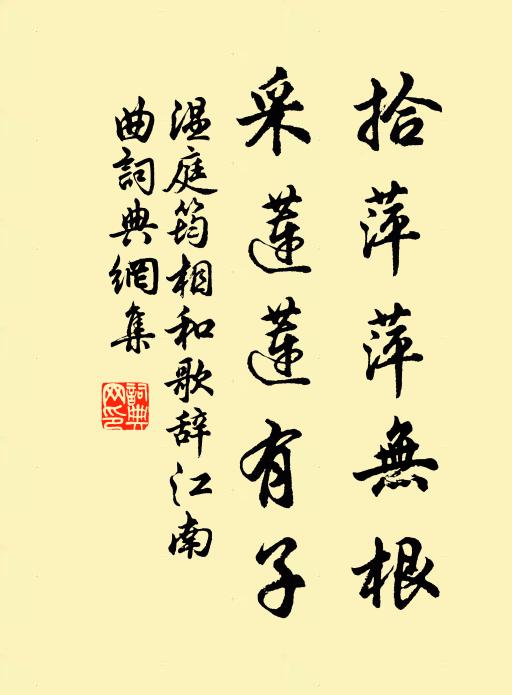 拾萍萍無根
采蓮蓮有子
温庭筠相和歌辞江南
曲詞典網集
詞典网印